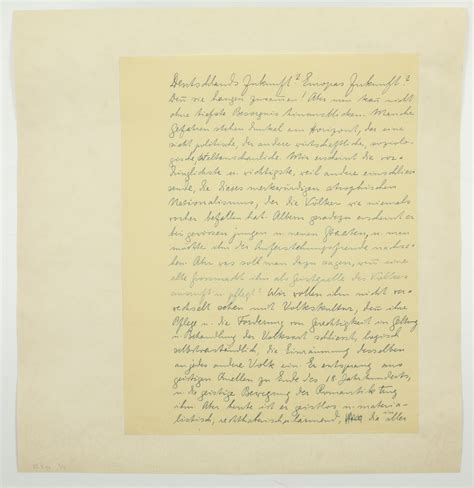 Deutschlands Zukunft? Europas Zukunft?
Denn sie hangen zusammen! Aber man kann nicht
ohne tiefste Besorgnis hinausblicken. Manche
Gefahren stehen dunkel am Horizont, das eine
sieht politische, der andere wirtschaftliche, soziolo-
gische, Weltanschauliche. Mir erscheint die vor-
dringlichste u wichtigste, weil andere einschlies-
sende, die dieses merkwürdigen
Nationalismus, der die Völker wie niemals
vorher befallen hat. Albern geradezu erscheint er
bei gewissen jungen u neuen Staaten, u man
möchte ihn der Auferstehungsfreude nachse-
hen. Aber was soll man dazu sagen, wenn eine
alte Grossmacht ihn als des Volkes
ansieht u pflegt! Wir wollen ihn nicht ver-
wechselt sehen mit Volkskultur, denn ihre
Pflege u. die Forderung von Gerechtigkeit in Geltung
u Behandlung der Volksart schliesst, logisch
selbstverständlich, die Einräumung desselben
an jedes andere Volk ein. Er entsprang aus
geistigen Quellen zu Ende des 18. Jahrhunderts,
u die geistige Bewegung der Romantik trug
ihn. Aber heute ist er geistlos u materia-
listisch, die aller